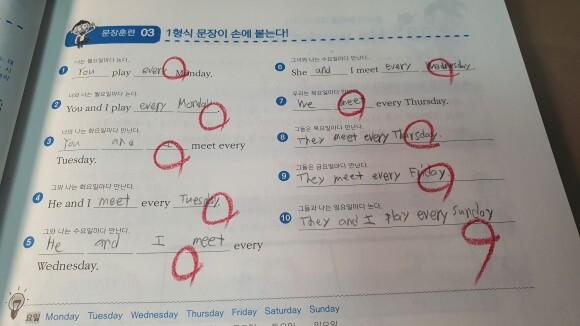 문장훈련 03 1형식 문장이 손에 붙는다!
너는 월요일마다 논다.
1 You play every Monday.
너와 나는 월요일마다 논다.
2 You and I play every Monday.
너와 나는 화요일마다 만난다.
3 You and I meet every
Tuesday.
그와 나는 화요일마다 만난다.
4 He and I meet every Tuesday.
그와 나는 수요일마다 만난다.
5 He and I meet every
Wednesday.
그녀와 나는 수요일마다 만난다.
6 She and I meet every Wednesday.
우리는 목요일마다 만난다.
7 We meet every Thursday.
그들은 목요일마다 만난다.
8 They meet every Thursday.
그들은 금요일마다 만난다.
9 They meet every Friday.
그들과 나는 일요일마다 논다.
10 They and I play every Sunday
요일 Monday Tuesday Wednesday Thursday Friday Saturday Sunday